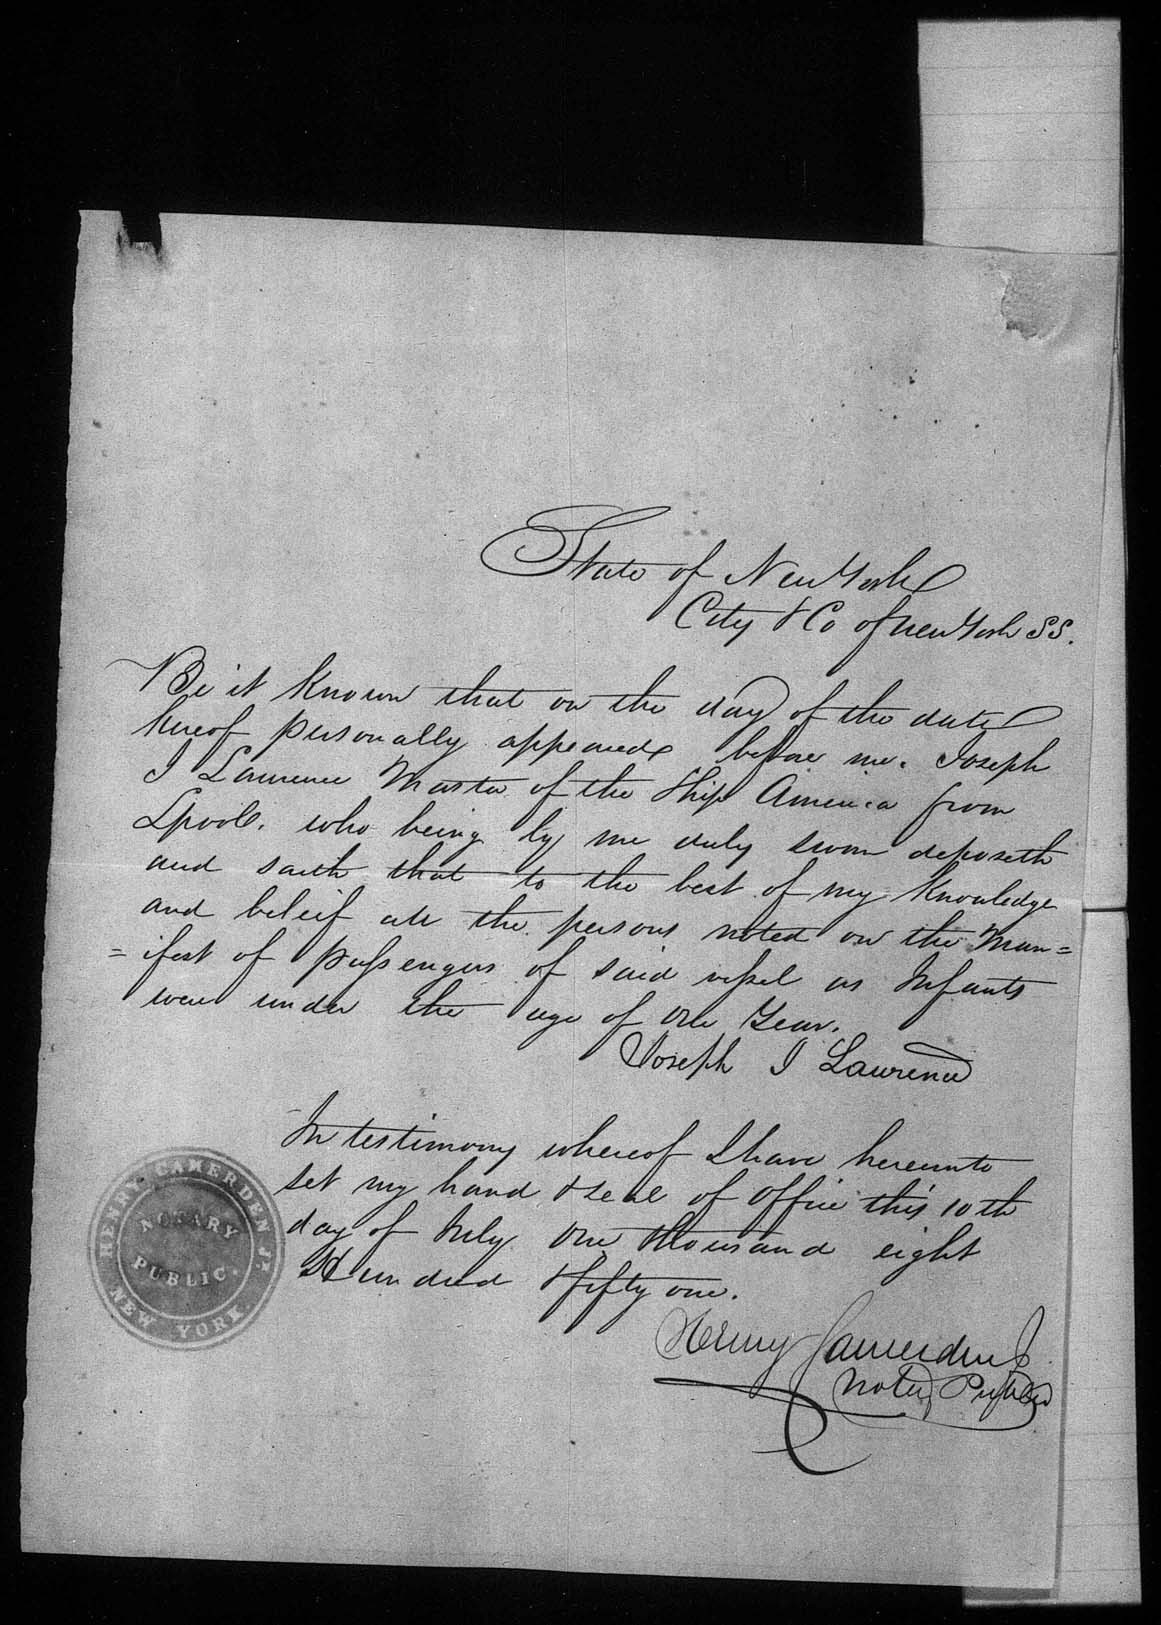 State of New York
City & Co of New York SS.
Be it Known that on the day of the date
hereof personally appeared before me. Joseph
J Lawrence Master of the Ship America from
Lpool. who being by me duly sworn deposeth
and saith that to the best of my Knowledge
and beleif all the persons noted on the Man=
=ifest of passengers of said vessel as Infants
were under the age of One Year.
Joseph J Lawrence
In testimony whereof I have hereunto
set my hand & seal of Office this 10th
day of July One thousand eight
Hundred & fifty one.
Henry Camerden Jr
Notary Public
HENRY CAMERDEN Jr.
NOTARY
PUBLIC.
NEW YORK